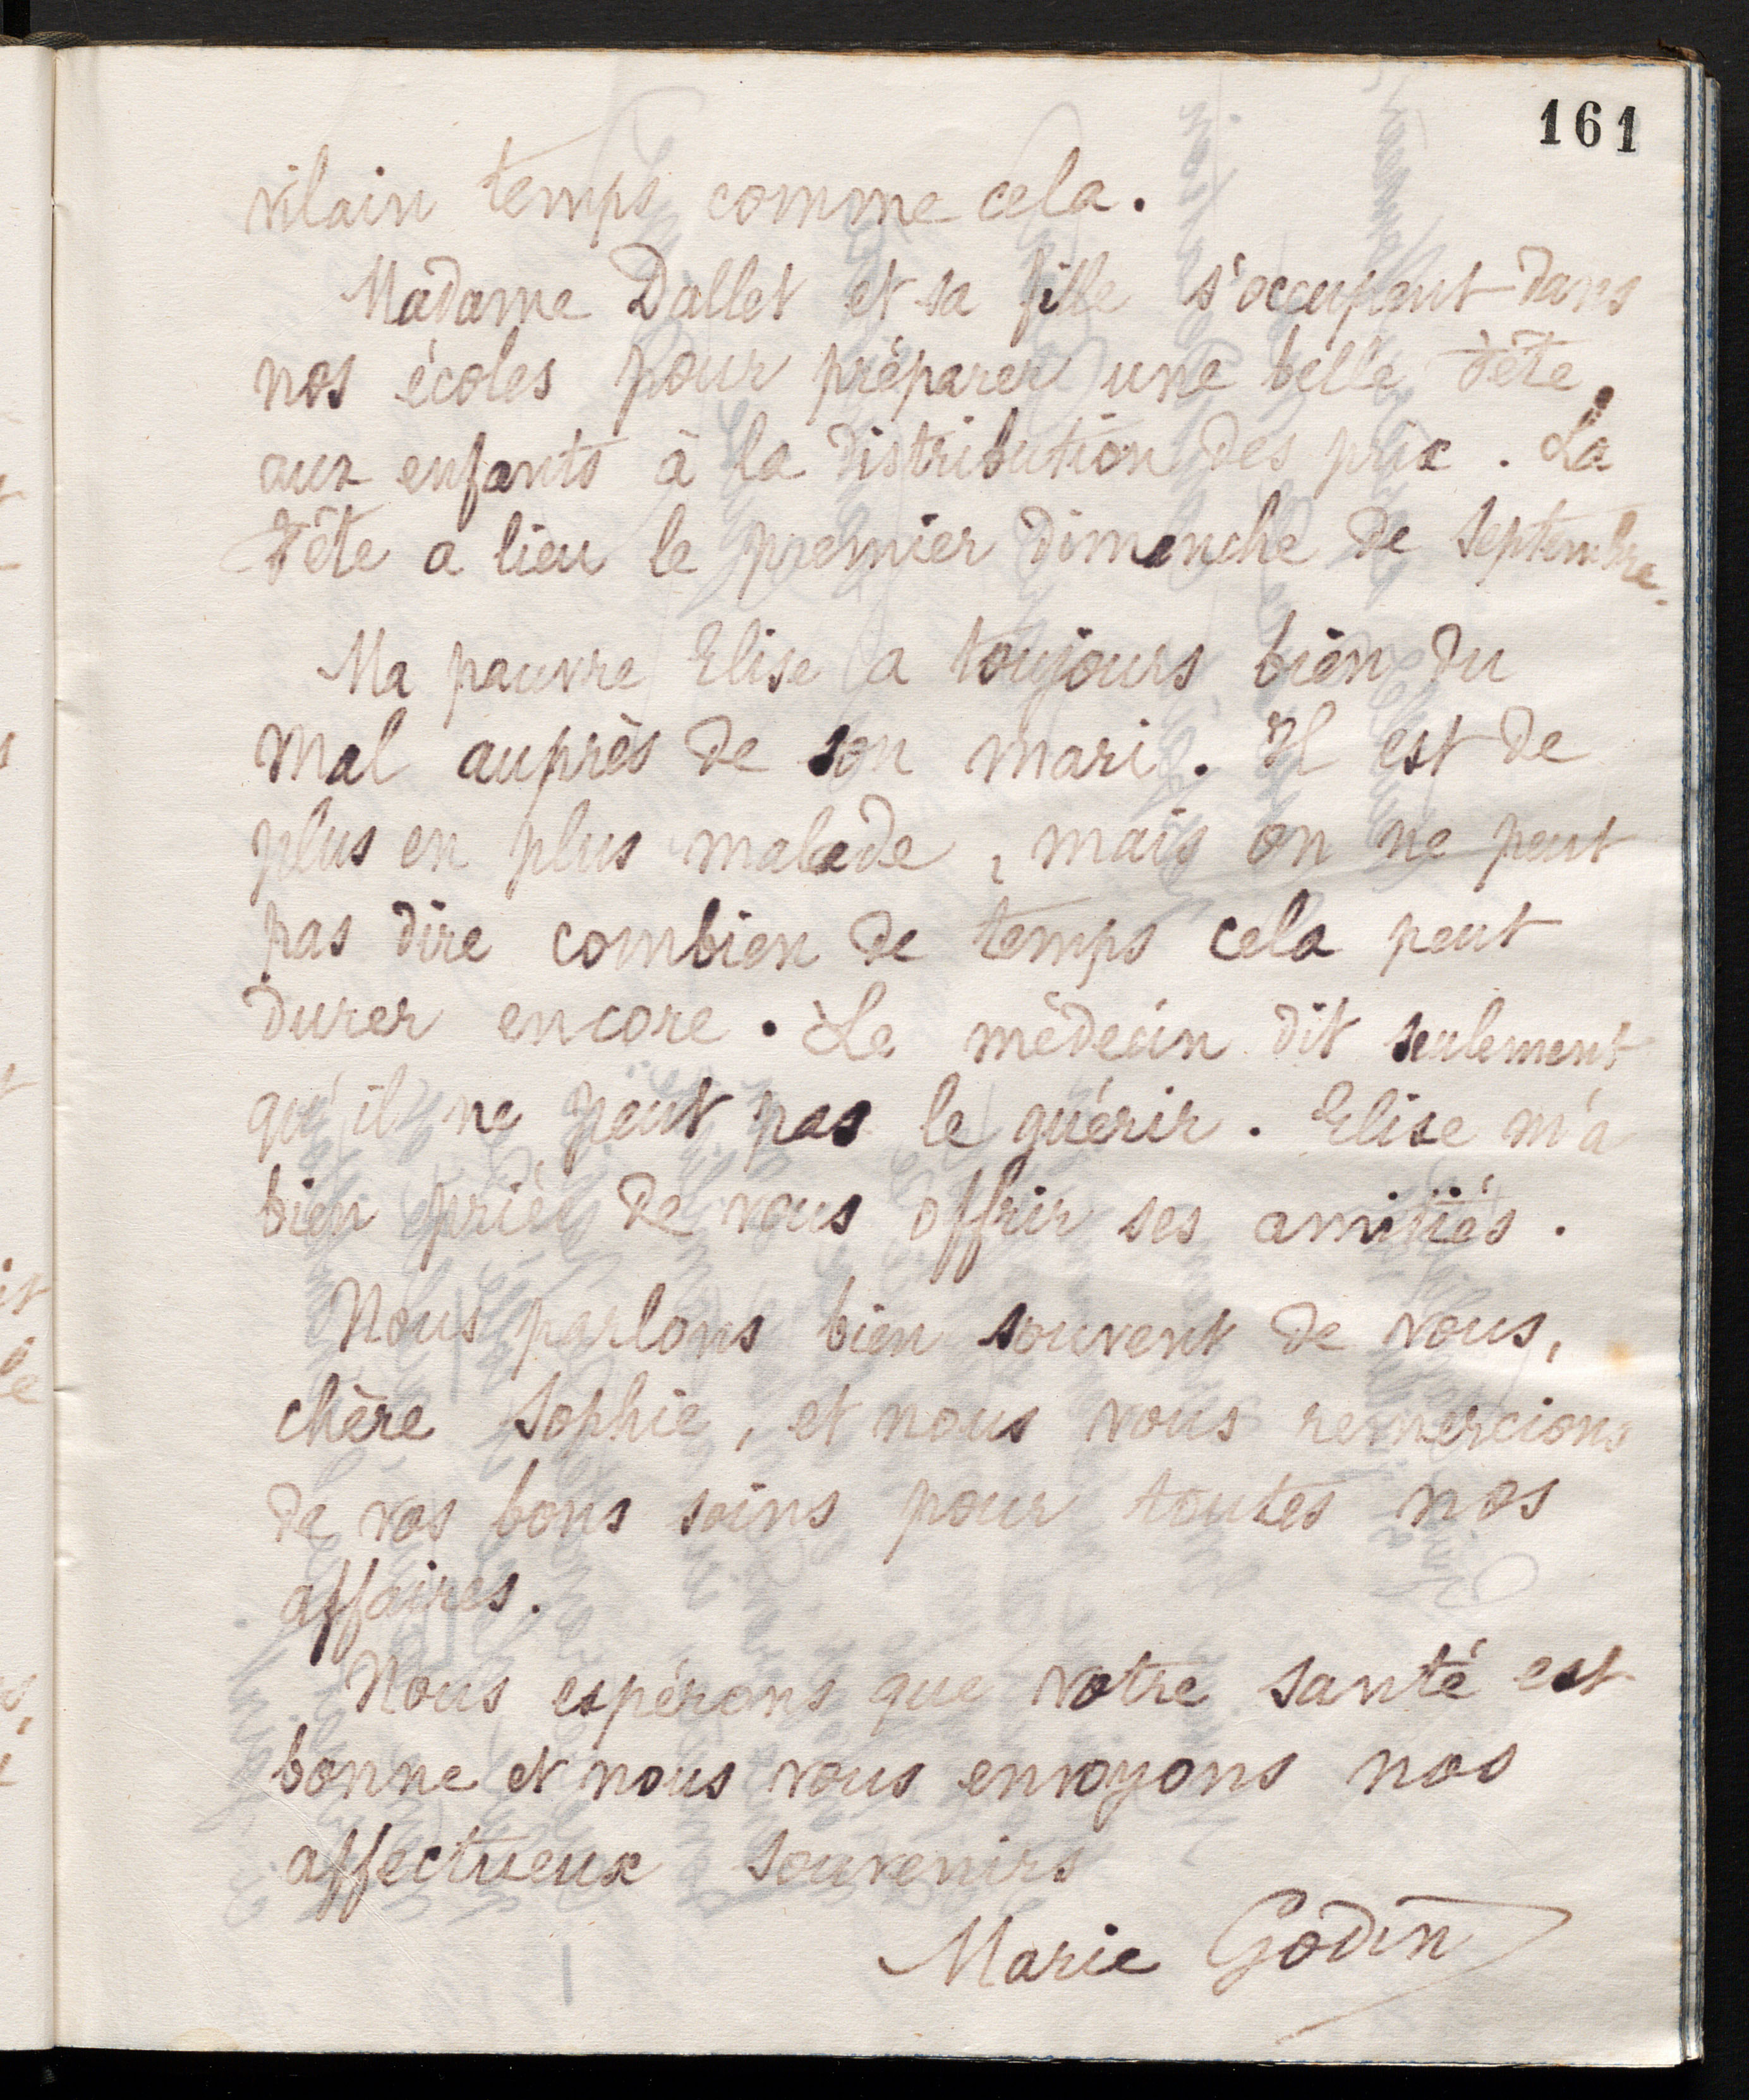 161
vilain temps comme cela.
Madame Dallet et sa fille s'occupent dans
nos écoles pour préparer une belle fête
aux enfants à la distribution des prix. La
Fête a lieu le premier dimanche de Septembre.
Ma pauvre Elise a toujours bien du
mal auprès de son mari. Il est de
plus en plus malade, mais on ne peut
pas dire combien de temps cela peut
durer encore. Le médecin dit seulement
qu'il ne peut pas le guérir. Elise m'a
bien priée de vous offrir ses amitiés.
Nous parlons bien souvent de vous,
chère Sophie, et nous vous remercions
de vos bons soins pour toutes nos
affaires.
Nous espérons que votre santé est
bonne et nous vous envoyons nos
affectueux souvenirs
Marie Godin